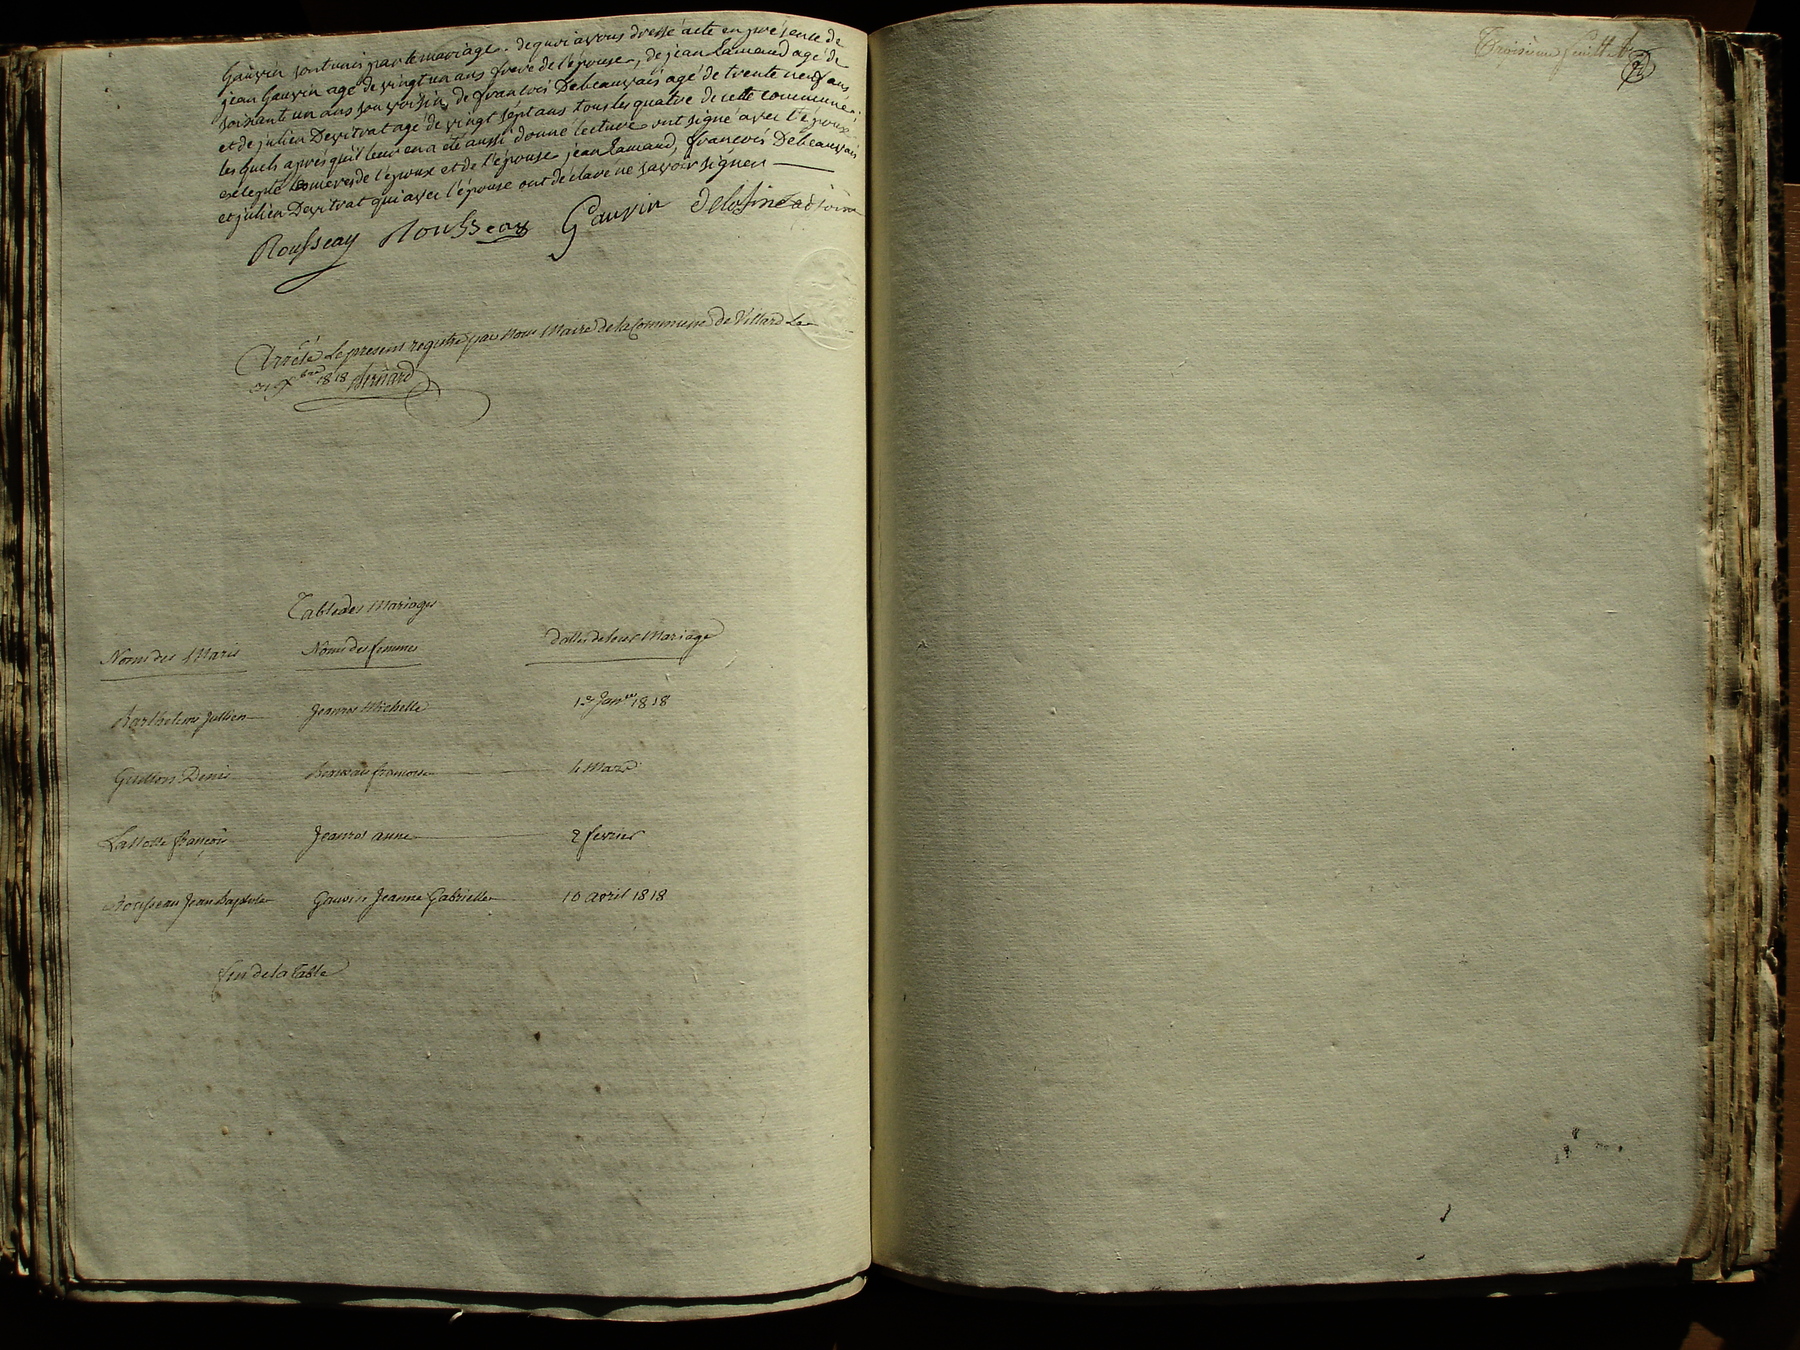 Gauvin sont unis par le mariage. de quoi avons dressé acte en présence de
jean Gauvin agé de vingt un ans frere de l'épouse, de jean Lamaud agé de
soixante un ans son voisin, de francois Debeauvais agé de trente neuf ans
et de julien Devitrat agé de vingt sept ans tous les quatre de cette commune
les quels après qu'il leur en a été aussi donné lecture ont signé avec l'époux
excepté les meres de l'époux et de l'épouse jean Lamaud, francois Debeauvais
et julien Devitrat qui avec l'épouse ont déclaré ne savoir signer
Rousseau Rousseau Gauvin adjoint
Arrêté le present registre par Nous Maire de la Commune de Villard Le
31 Xbre 1818 Bernard
Table des Mariages
Noms des Maris Noms des femmes dattes de leur Mariage
Barthelemi Jullien Jeanrot Michelle 1er Janer 1818
Guitton Denis francoise 4 Mars
LaMotte françois Jeanrot anne 2 fevrier
Rousseau Jean Baptiste Gauvin Jeanne Gabrielle 10 avril 1818
fin de la table
Troisieme feuillet